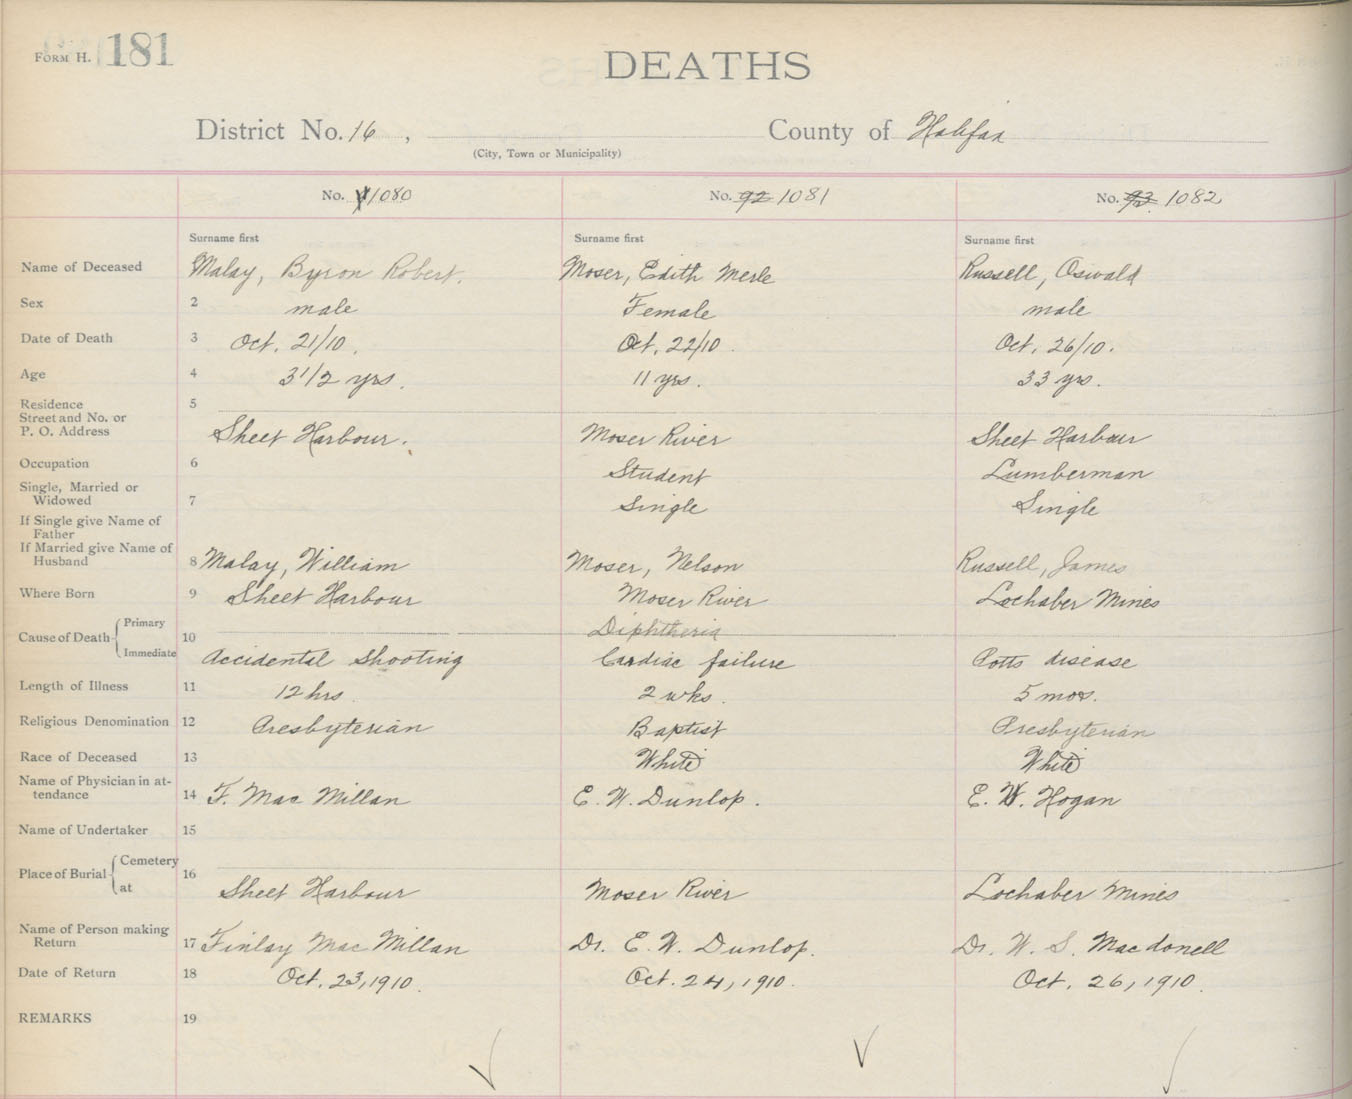 FORM H. 181
DEATHS
District No. 16, County of Halifax
(City, Town or Municipality)
No. 1080 No. 92 1081 No. 93 1082
Surname first Surname first Surname first
Name of Deceased Malay, Byron Robert. Moser, Edith Merle Russell, Oswald
Sex 2 male Female male
Date of Death 3 Oct. 21/10. Oct. 22/10. Oct. 26/10.
Age 4 3 1/2 yrs. 11 yrs. 33 yrs.
Residence 5
Street and No. or
P. O. Address Sheet Harbour. Moser River Sheet Harbour
Occupation 6 Student Lumberman
Single, Married or
Widowed 7 Single Single
If Single give Name of
Father
If Married give Name of
Husband 8 Malay, William Moser, Nelson Russell, James
Where Born 9 Sheet Harbour Moser River Lochaber Mines
Cause of Death 10 Primary Diphtheria
Immediate Accidental Shooting Cardiac failure Potts disease
Length of Illness 11 12 hrs. 2 wks. 5 mos.
Religious Denomination 12 Presbyterian Baptist Presbyterian
Race of Deceased 13 White White
Name of Physician in at-
tendance 14 F. MacMillan E. W. Dunlop. E. W. Hogan
Name of Undertaker 15
Place of Burial 16 Cemetery
at Sheet Harbour Moser River Lochaber Mines
Name of Person making
Return 17 Finlay MacMillan Dr. E. W. Dunlop. Dr. W. S. Macdonell
Date of Return 18 Oct. 23, 1910. Oct. 24, 1910. Oct. 26, 1910.
REMARKS 19